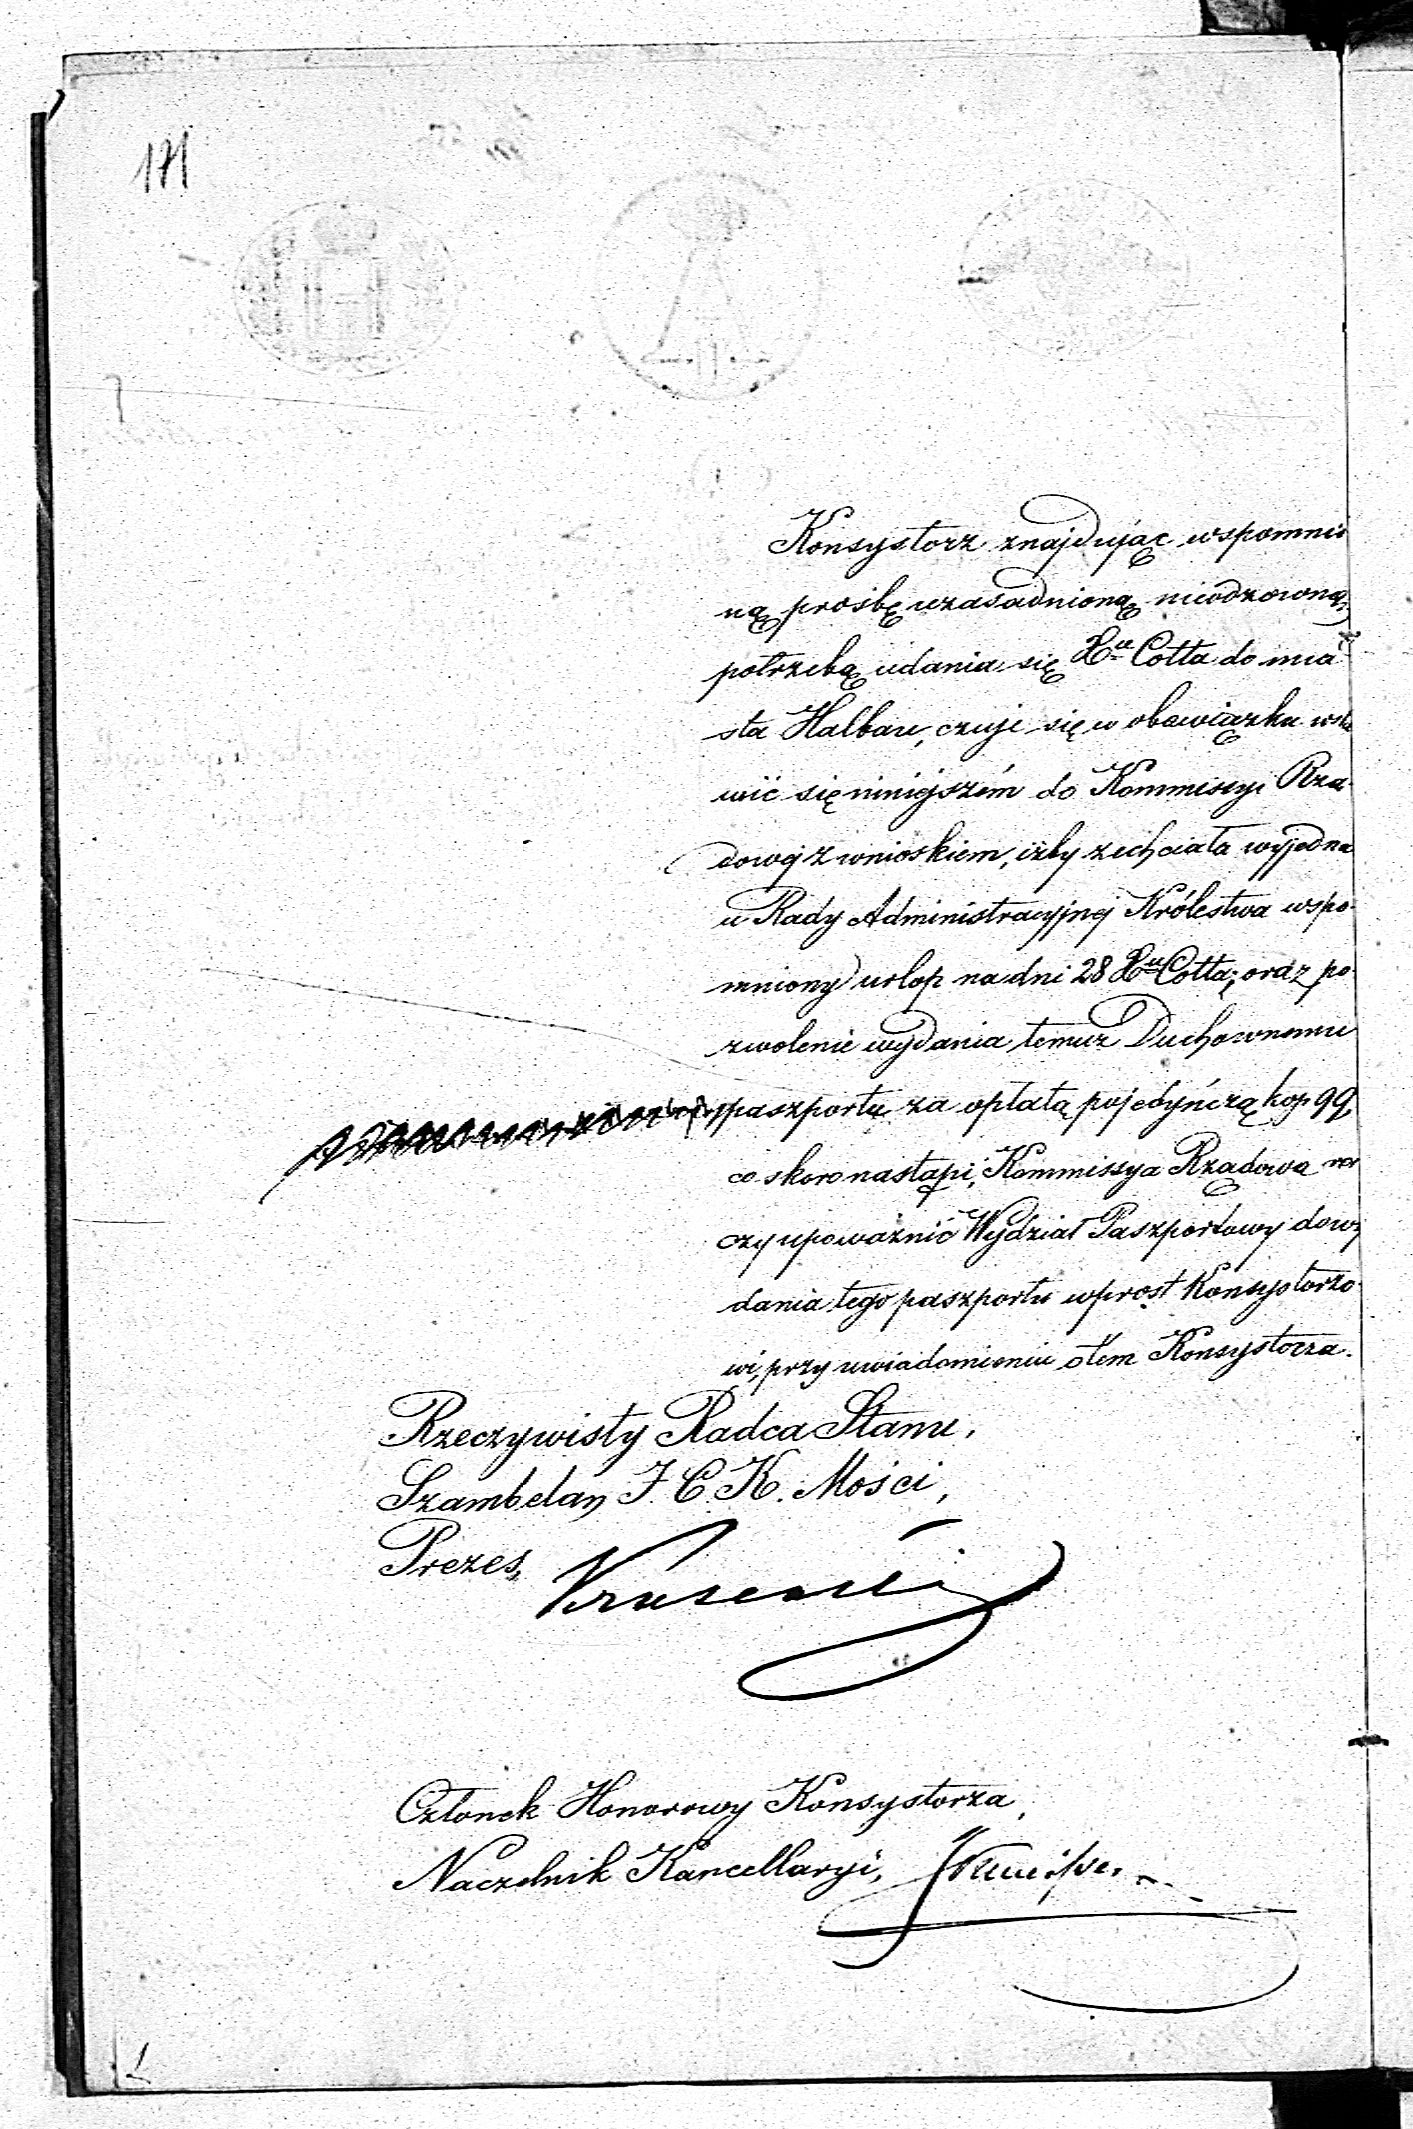 171
Konsystorz znajdując wspomnio
ną prośbę uzasadnioną nieodzowną
potrzebą udania się Xa Cotta do mia
sta Halbau, czuje się w obowiązku wsta
wić się niniejszém do Kommissyi Rzą
dowéj z wnioskiem, iżby zechciała wyjedna
u Rady Administracyjnej Królestwa wspo
mniony urlop na dni 28 Xu Cotta; oraz po
zwolenie wydania temuż Duchownemu
paszportu za opłatą pojedyńczą kop 99,
co skoro nastąpi, Kommissya Rządowa ra
czy upoważnić Wydział Paszportowy do wy
dania tego paszportu wprost Konsystorzo
wi, przy uwiadomieniu o tem Konsystorza.
Rzeczywisty Radca Stanu,
Szambelan J. C. K. Mości,
Prezes,
Członek Honorowy Konsystorza,
Naczelnik Kancellaryi,